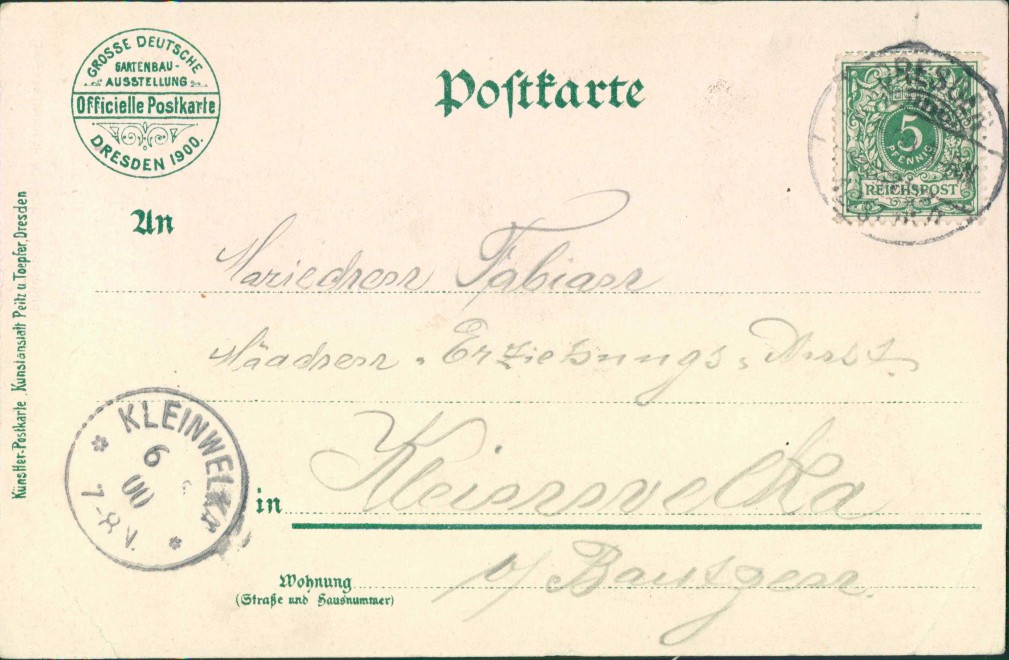 GROSSE DEUTSCHE
GARTENBAU-
AUSSTELLUNG
Officielle Postkarte
DRESDEN 1900.
Postkarte
5
PFENNIG
REICHSPOST
An
Fabian
Erziehungs-Anst.
Kleinwelka
b/ Bautzen
in
Wohnung
(Straße und Hausnummer)
KLEINWELKA
6
00
7-8 V.
Künstler-Postkarte, Kunstanstalt Peitz u. Toepfer, Dresden